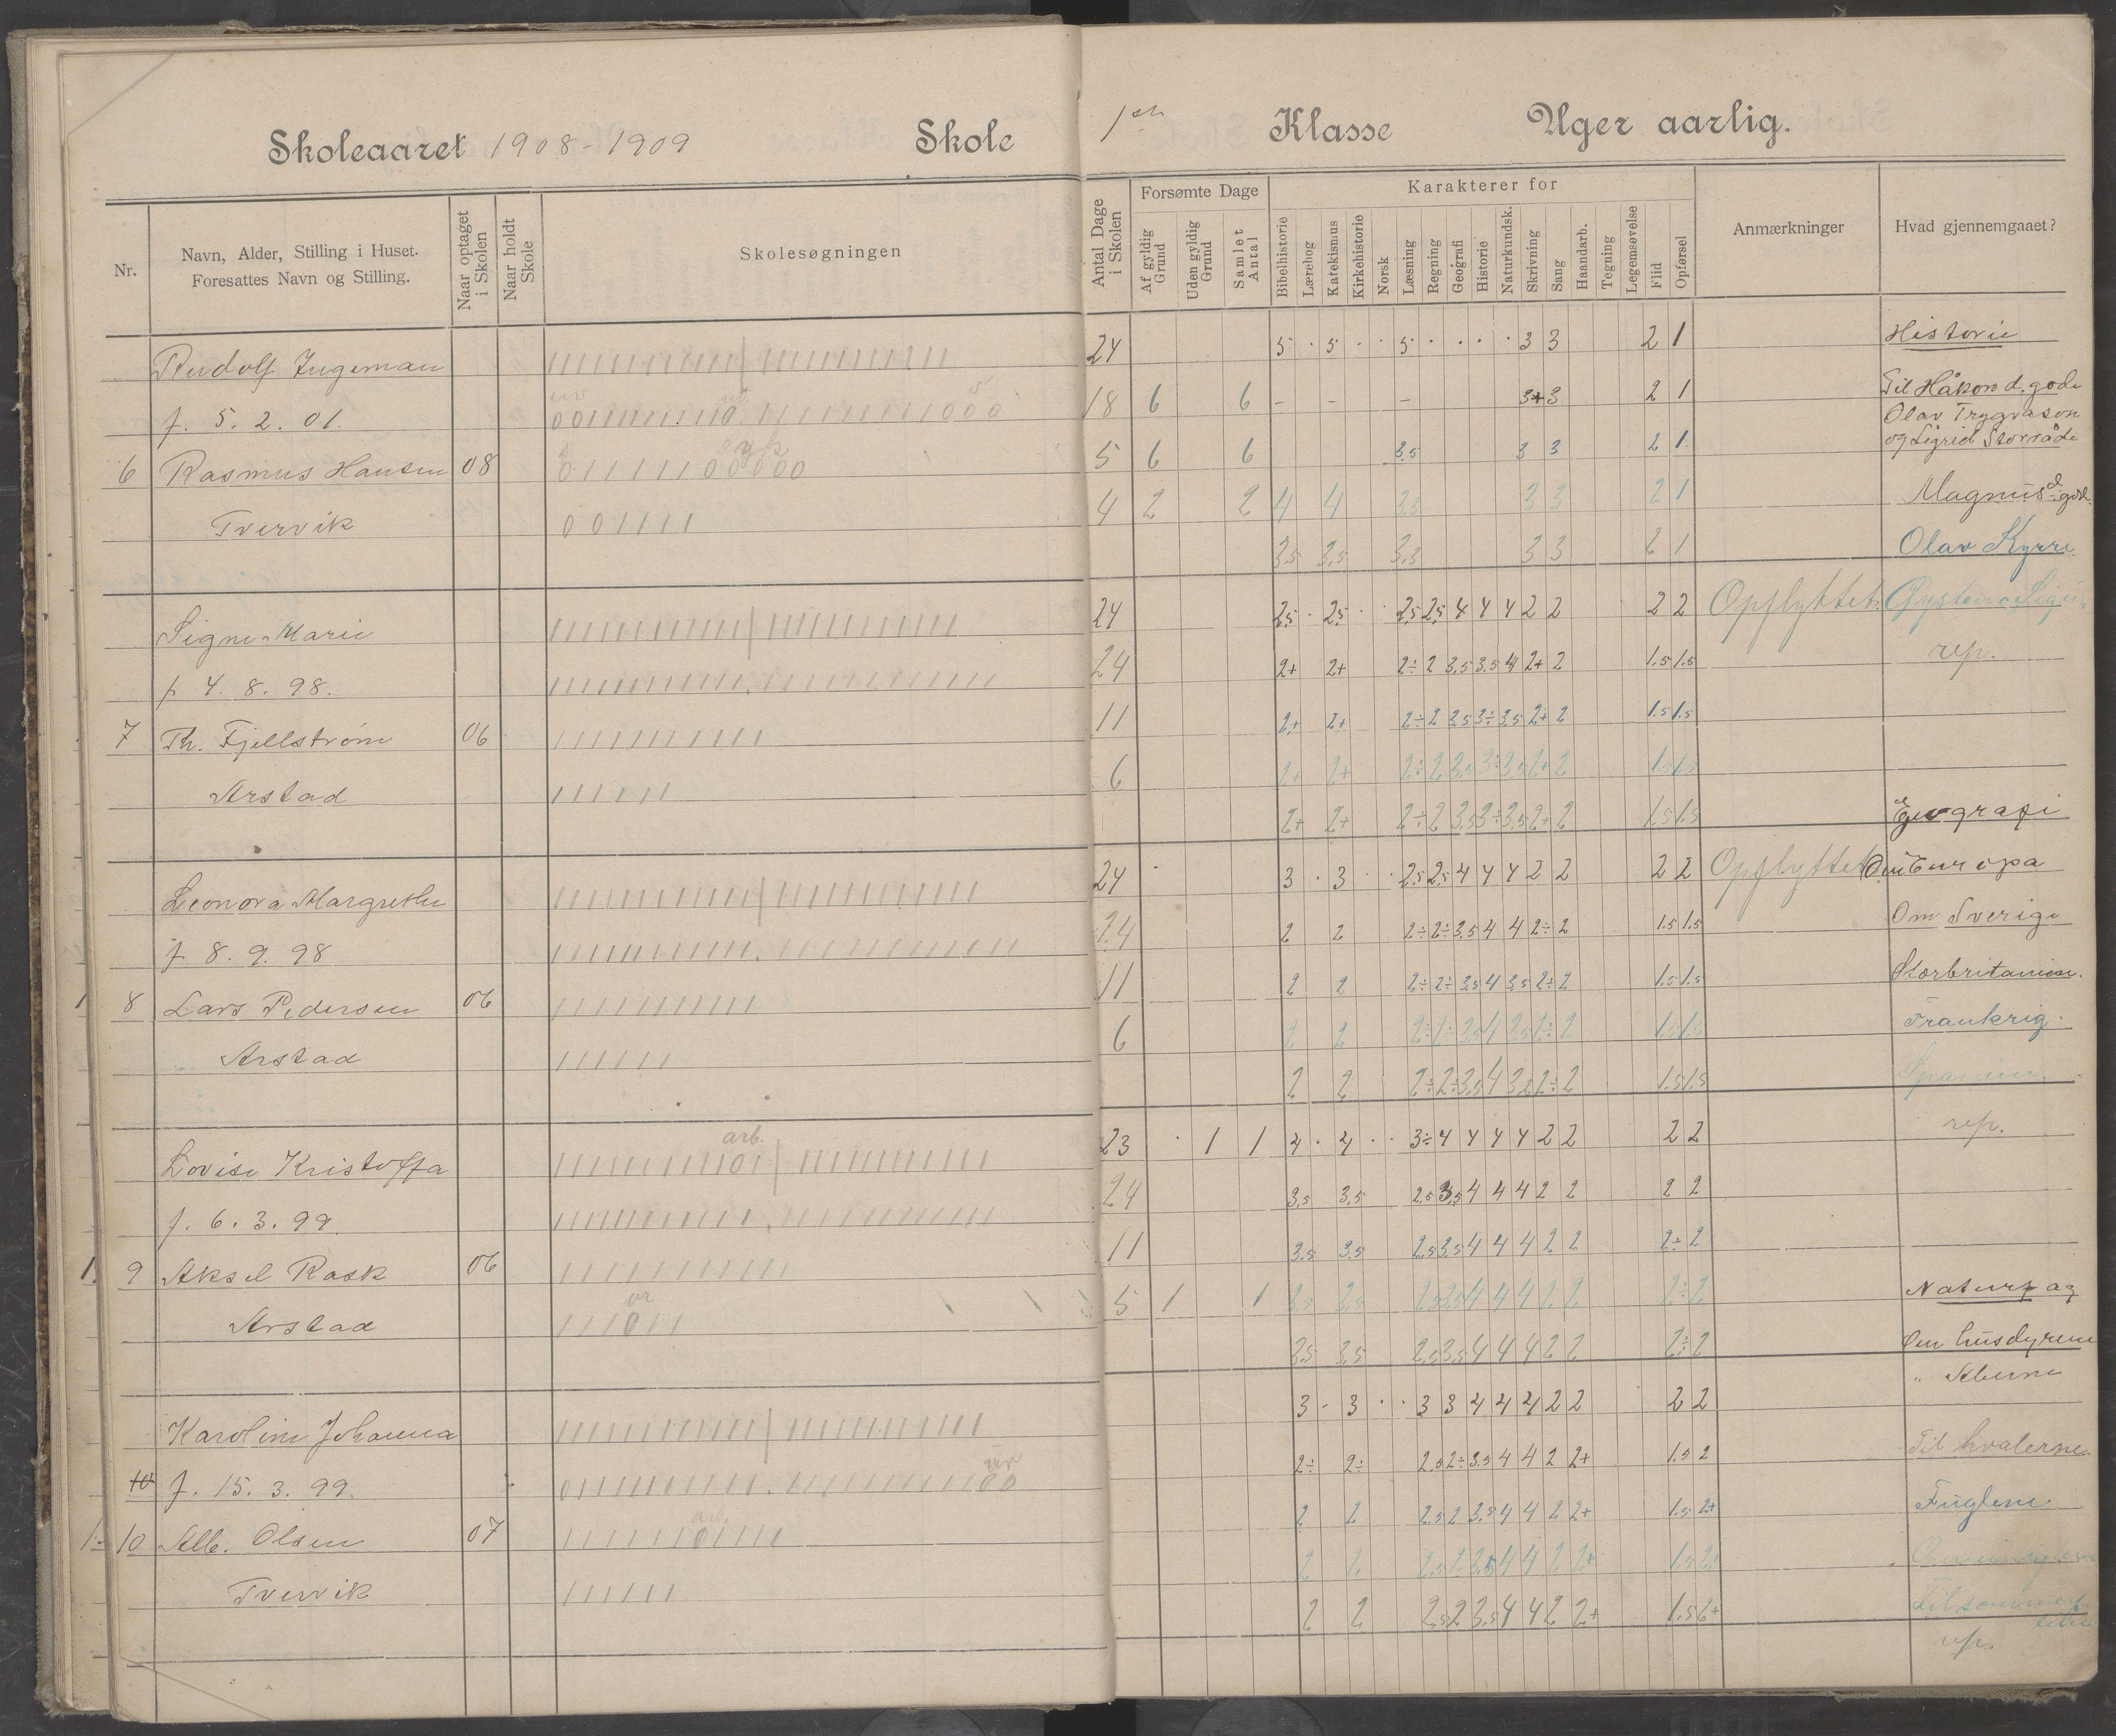 Skoleaaret 1908-1909 Skole
Nr.
Navn, Alder, Stilling i Huset.
Foresattes Navn og Stilling.
Naar optaget i Skolen
Naar holdt Skole
Skolesøgningen
Rudolf Ingeman
f. 5. 2. 01.
6 Rasmus Hansen 08
Tvervik
Signe Marie
f 4. 8. 98.
7 Th. Fjellstrøm 06
Arstad
Leonora Margrethe
f 8. 9. 98
8 Lars Pedersen 06
Arstad
arb.
Lovise Kristoffa
f. 6. 3. 99.
1. 9 Aksel Rask 06
Arstad
Karoline Johanna
10 f. 15. 3. 99.
1. 10 Alb. Olsen 07
Tvervik
Klasse Uger aarlig.
Antal Dage i Skolen
Forsømte Dage
Af gyldig Grund
Uden gyldig Grund
Samlet Antal
Karakterer for
Bibelhistorie
Lærebog
Katekismus
Kirkehistorie
Norsk
Læsning
Regning
Geografi
Historie
Naturkundsk.
Skrivning
Sang
Haandarb.
Tegning
Legemsøvelse
Flid
Opførsel
Anmærkninger
Hvad gjennemgaaet?
24 5 · 5 · · 5 · · · · 3 3 2 1 Historie
18 6 6 - - - 3+ 3 2 1 Til Håkon d. gode
Olav Trygvason
5 6 6 3.5 3 3 2 1 og Sigrid Storråde
4 2 2 4 4 3.5 3 3 2 1 Magnus d. gode
3.5 3.5 3.3 3 3 2 1 Olav Kyrre
24 2.5 · 2.5 · · 2.5 2.5 4 4 4 2 2 2 2 Opflyttet.
24 2+ 2+ 2÷ 2 3.5 3.5 4 2+ 2 1.5 1.5 rep.
11 2+ 2+ 2÷ 2 3.5 3÷ 3.5 2+ 2 1.5 1.5
6 2+ 2+ 2÷ 2 3.5 3÷ 3.5 2+ 2 1.5 1.5
2+ 2+ 2÷ 2 3.5 3÷ 3.5 2+ 2 1.5 1.5 Geografi
24 3 · 3 · · 2.5 2.5 4 4 4 2 2 2 2 Opflyttet Om Europa
24 2 2 2÷ 2÷ 3.5 4 4 2÷ 2 1.5 1.5 Om Sverige
11 2 2 2÷ 2÷ 3.5 4 3.5 2÷ 2 1.5 1.5 Storbritanien.
6 2 2 2÷ 2÷ 3.5 4 3.5 2÷ 2 1.5 1.5 Frankrig.
2 2 2÷ 2÷ 3.5 4 3.5 2÷ 2 1.5 1.5 Spanien.
23 · 1 1 4 · 4 · · 3÷ 4 4 4 4 2 2 2 2 rep.
24 3.5 3.5 2.5 3.5 4 4 4 2 2 2 2
11 3.5 3.5 2.5 3.5 4 4 4 2 2 2÷ 2
5 1 1 3.5 3.5 2.5 3.5 4 4 4 2 2 2÷ 2 Naturfag
3.5 3.5 2.5 3.5 4 4 4 2 2 2÷ 2 Om husdyrene
" Aberne
3 - 3 · · 3 3 4 4 4 2 2 2 2
2÷ 2÷ 2.5 2÷ 3.5 4 4 2 2+ 1.5 2 Til hvalerne
2 2 2.5 2 3.5 4 4 2 2+ 1.5 2+ Fuglene.
2 2 2.5 2 3.5 4 4 2 2+ 1.5 2+
2 2 2.5 2 3.5 4 4 2 2+ 1.5 2+
rep.